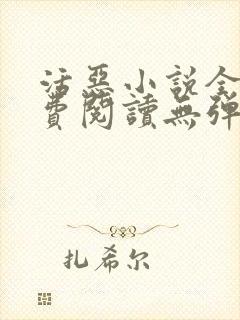 活惡小說全
費閱讀無彈
扎希尔